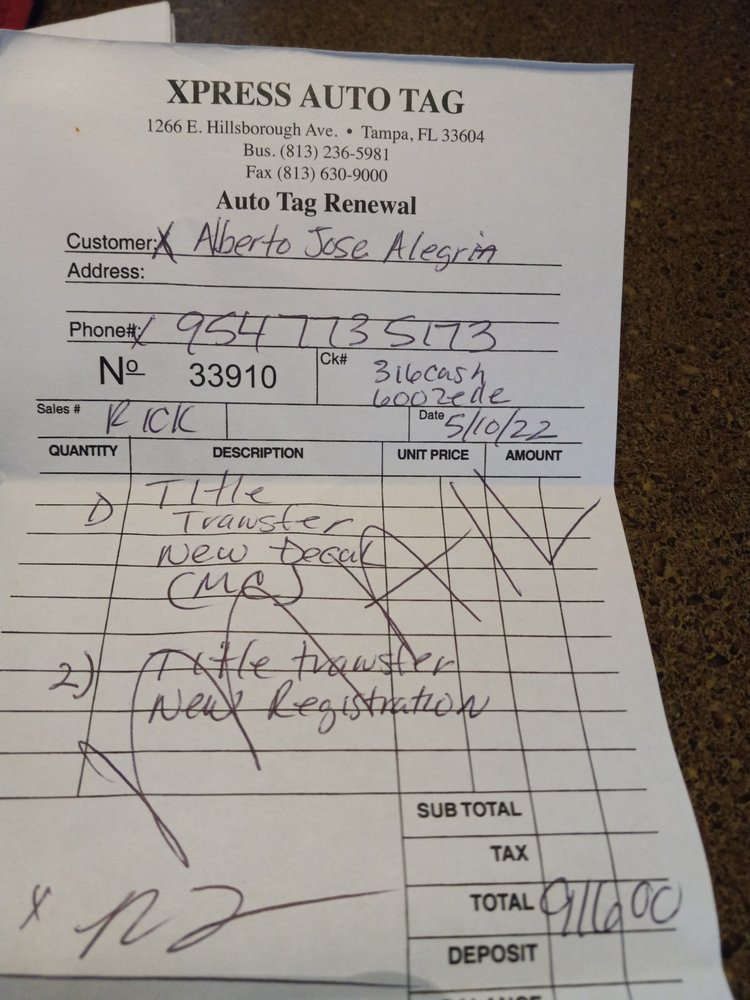 XPRESS AUTO TAG
1266 E. Hillsborough Ave. • Tampa, FL 33604
Bus. (813) 236-5981
Fax (813) 630-9000
Auto Tag Renewal
Customer: X Alberto Jose Alegria
Address:
Phone#: X 954 773 5173
Nº 33910 Ck# 316 cash
600 zelle
Sales # RICK Date 5/10/22
QUANTITY DESCRIPTION UNIT PRICE AMOUNT
1) Title
Transfer
New Decal
(MC)
PAID
2) Title transfer
New Registration
SUB TOTAL
TAX
X TOTAL 916.00
DEPOSIT
BALANCE